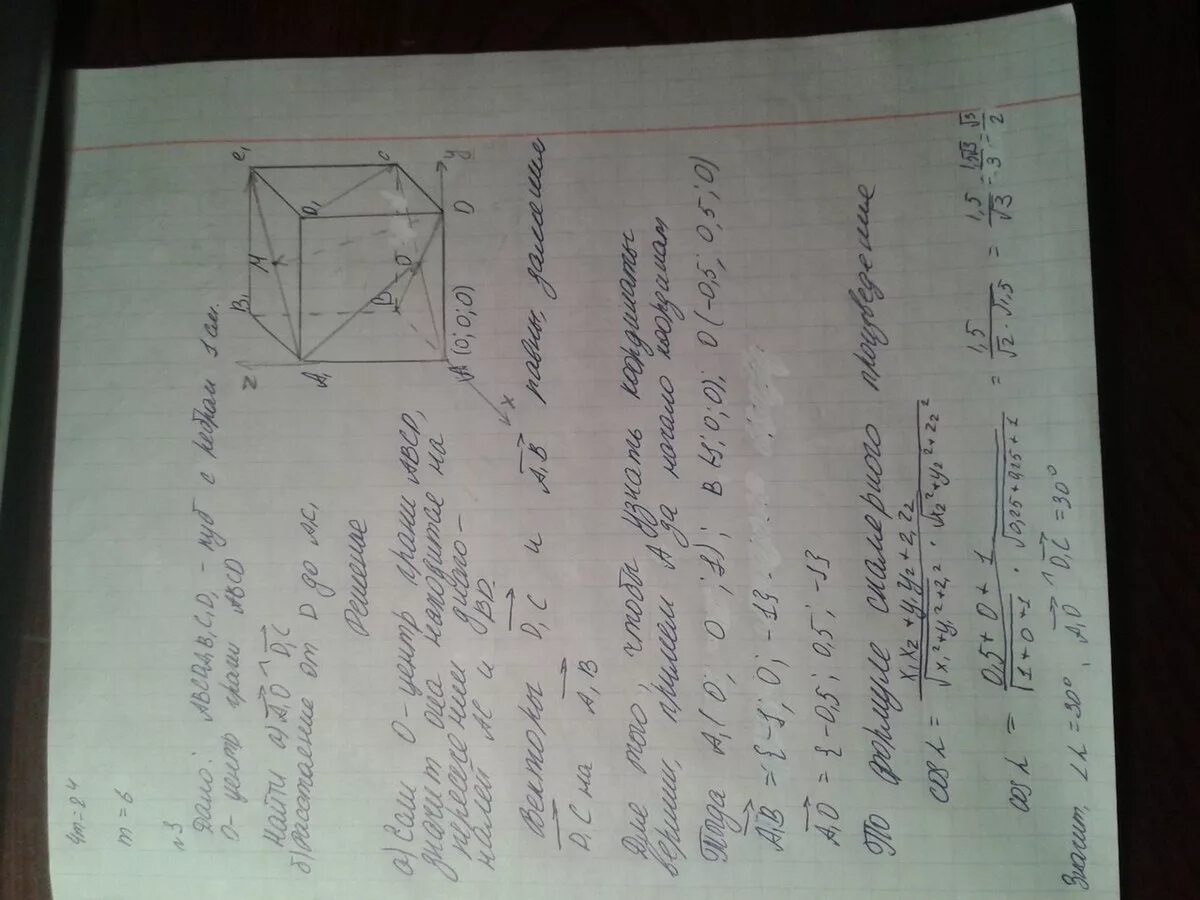 4m=24
m=6
№3
Дано: ABCDA₁B₁C₁D₁ - куб с ребром 1 см.
O - центр грани ABCD
Найти а) A₁O ^ D₁C
б) Расстояние от D до AC₁
Решение
а) Если O - центр грани ABCD,
значит она находится на
пересечении диаго-
налей AC и BD.
Z
B₁
M
C₁
A₁
D₁
B
O
C
A (0;0;0)
D
y
x
Векторы D₁C и A₁B равны, заменим
D₁C на A₁B
Для того, чтобы узнать координаты
вершин, примем A за начало координат
Тогда A₁(0; 0; 1); B(-1; 0; 0); O(-0,5; 0,5; 0)
A₁B = {-1; 0; -1}.
A₁O = {-0,5; 0,5; -1}
По формуле скалярного произведения
cos α = x₁x₂+y₁y₂+z₁z₂ / √x₁²+y₁²+z₁² · √x₂²+y₂²+z₂²
cos α = 0,5+0+1 / √1+0+1 · √0,25+0,25+1 = 1,5 / √2 · √1,5 = 1,5 / √3 = 1,5√3 / 3 = √3 / 2
Значит, ∠α=30°, A₁O ^ D₁C = 30°